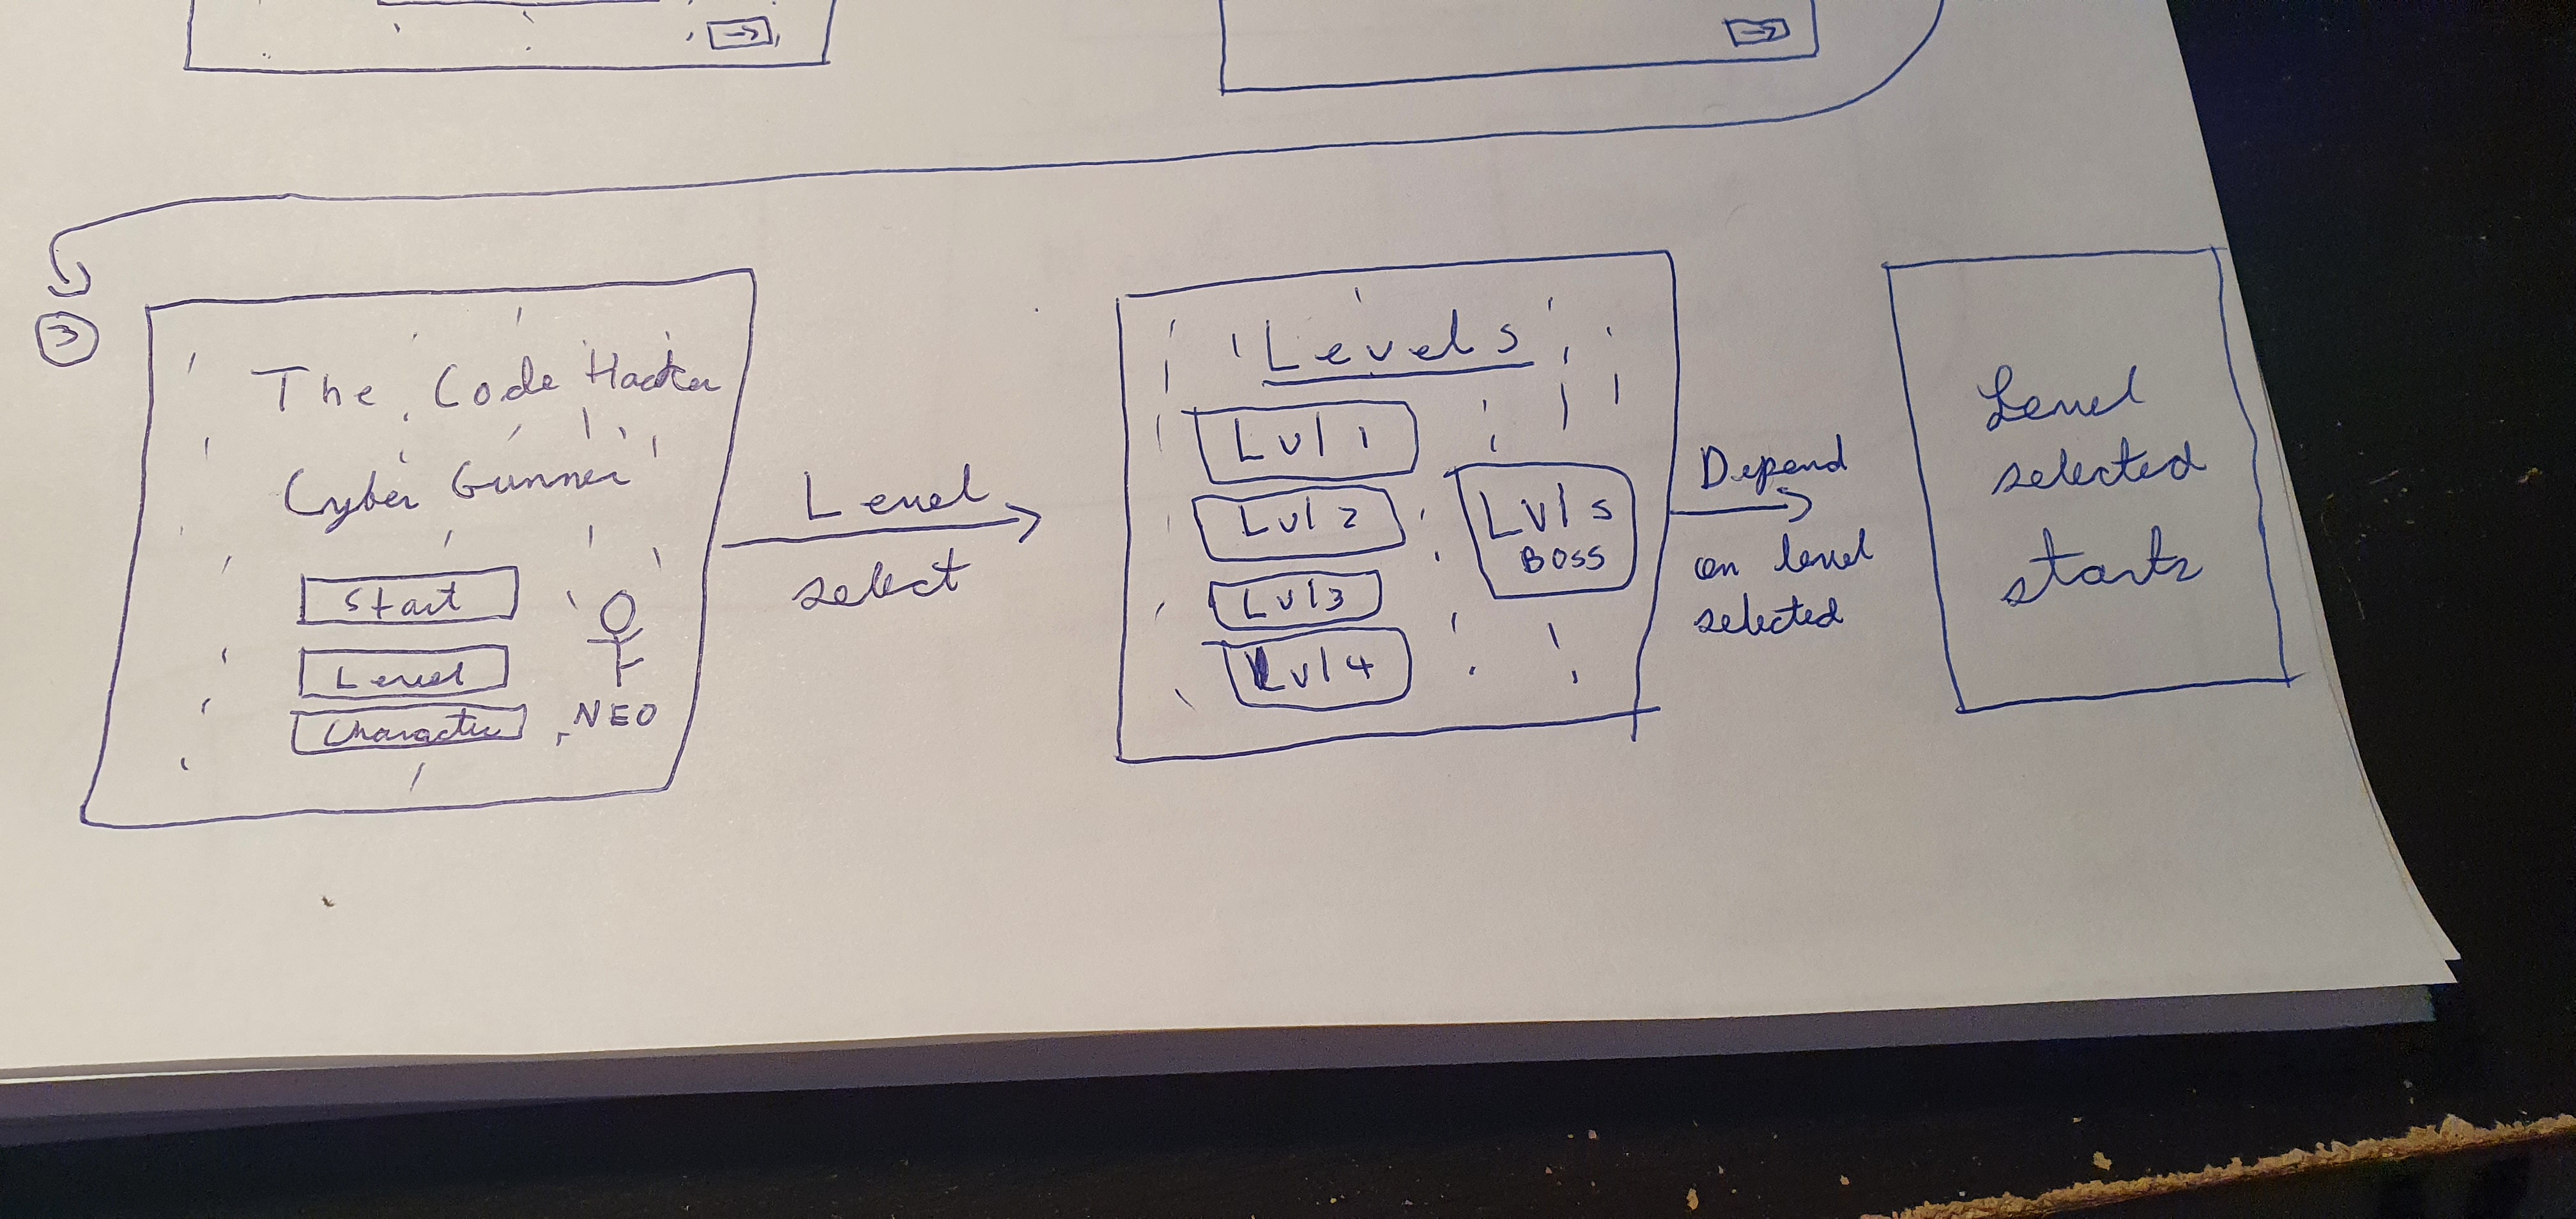 3
The Code Hacker
Cyber Gunner
Start
Level
Character
NEO
Level
select
Levels
Lvl 1
Lvl 2
Lvl 3
Lvl 4
Lvl 5
BOSS
Depend
on level
selected
Level
selected
starts